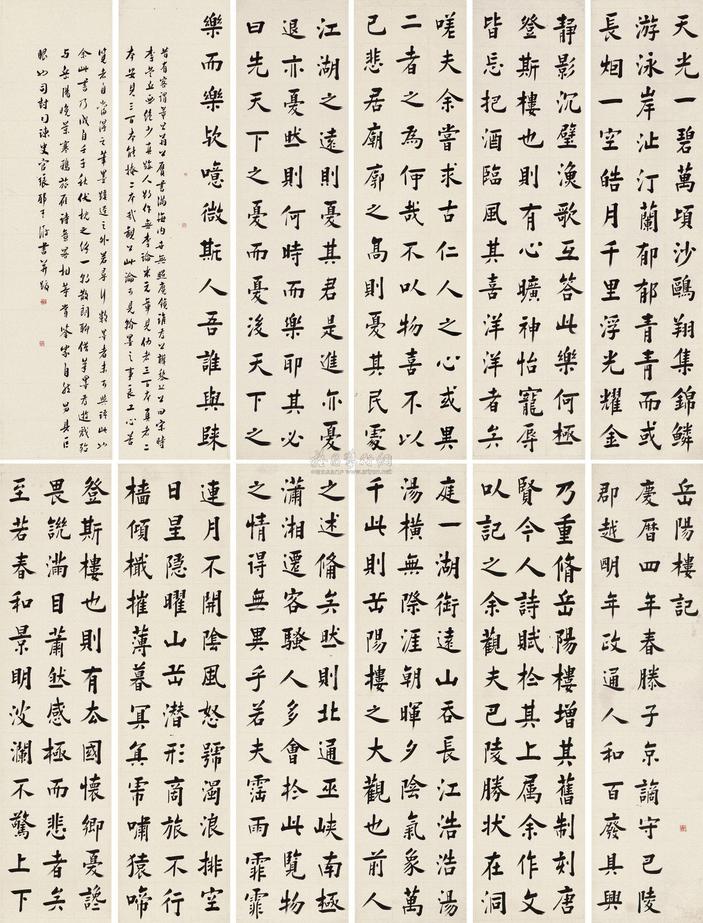 岳陽樓記
慶曆四年春滕子京謫守巴陵
郡越明年政通人和百廢具興
乃重脩岳陽樓增其舊制刻唐
賢今人詩賦於其上属余作文
以記之余觀夫巴陵勝狀在洞
庭一湖銜遠山吞長江浩浩湯
湯橫無際涯朝暉夕陰氣象萬
千此則岳陽樓之大觀也前人
之述俻矣然則北通巫峽南極
瀟湘遷客騷人多會於此覽物
之情得無異乎若夫霪雨霏霏
連月不開陰風怒號濁浪排空
日星隱曜山岳潛形商旅不行
檣傾檝摧薄暮冥冥虎嘯猿啼
登斯樓也則有去國懷鄉憂讒
畏譏滿目蕭然感極而悲者矣
至若春和景明波瀾不驚上下
天光一碧萬頃沙鷗翔集錦鱗
游泳岸沚汀蘭郁郁青青而或
長烟一空皓月千里浮光耀金
靜影沉璧漁歌互答此樂何極
登斯樓也則有心曠神怡寵辱
皆忘把酒臨風其喜洋洋者矣
嗟夫余嘗求古仁人之心或異
二者之為何哉不以物喜不以
己悲居廟廊之高則憂其民處
江湖之遠則憂其君是進亦憂
退亦憂然則何時而樂耶其必
曰先天下之憂而憂後天下之
樂而樂歟噫微斯人吾誰與歸